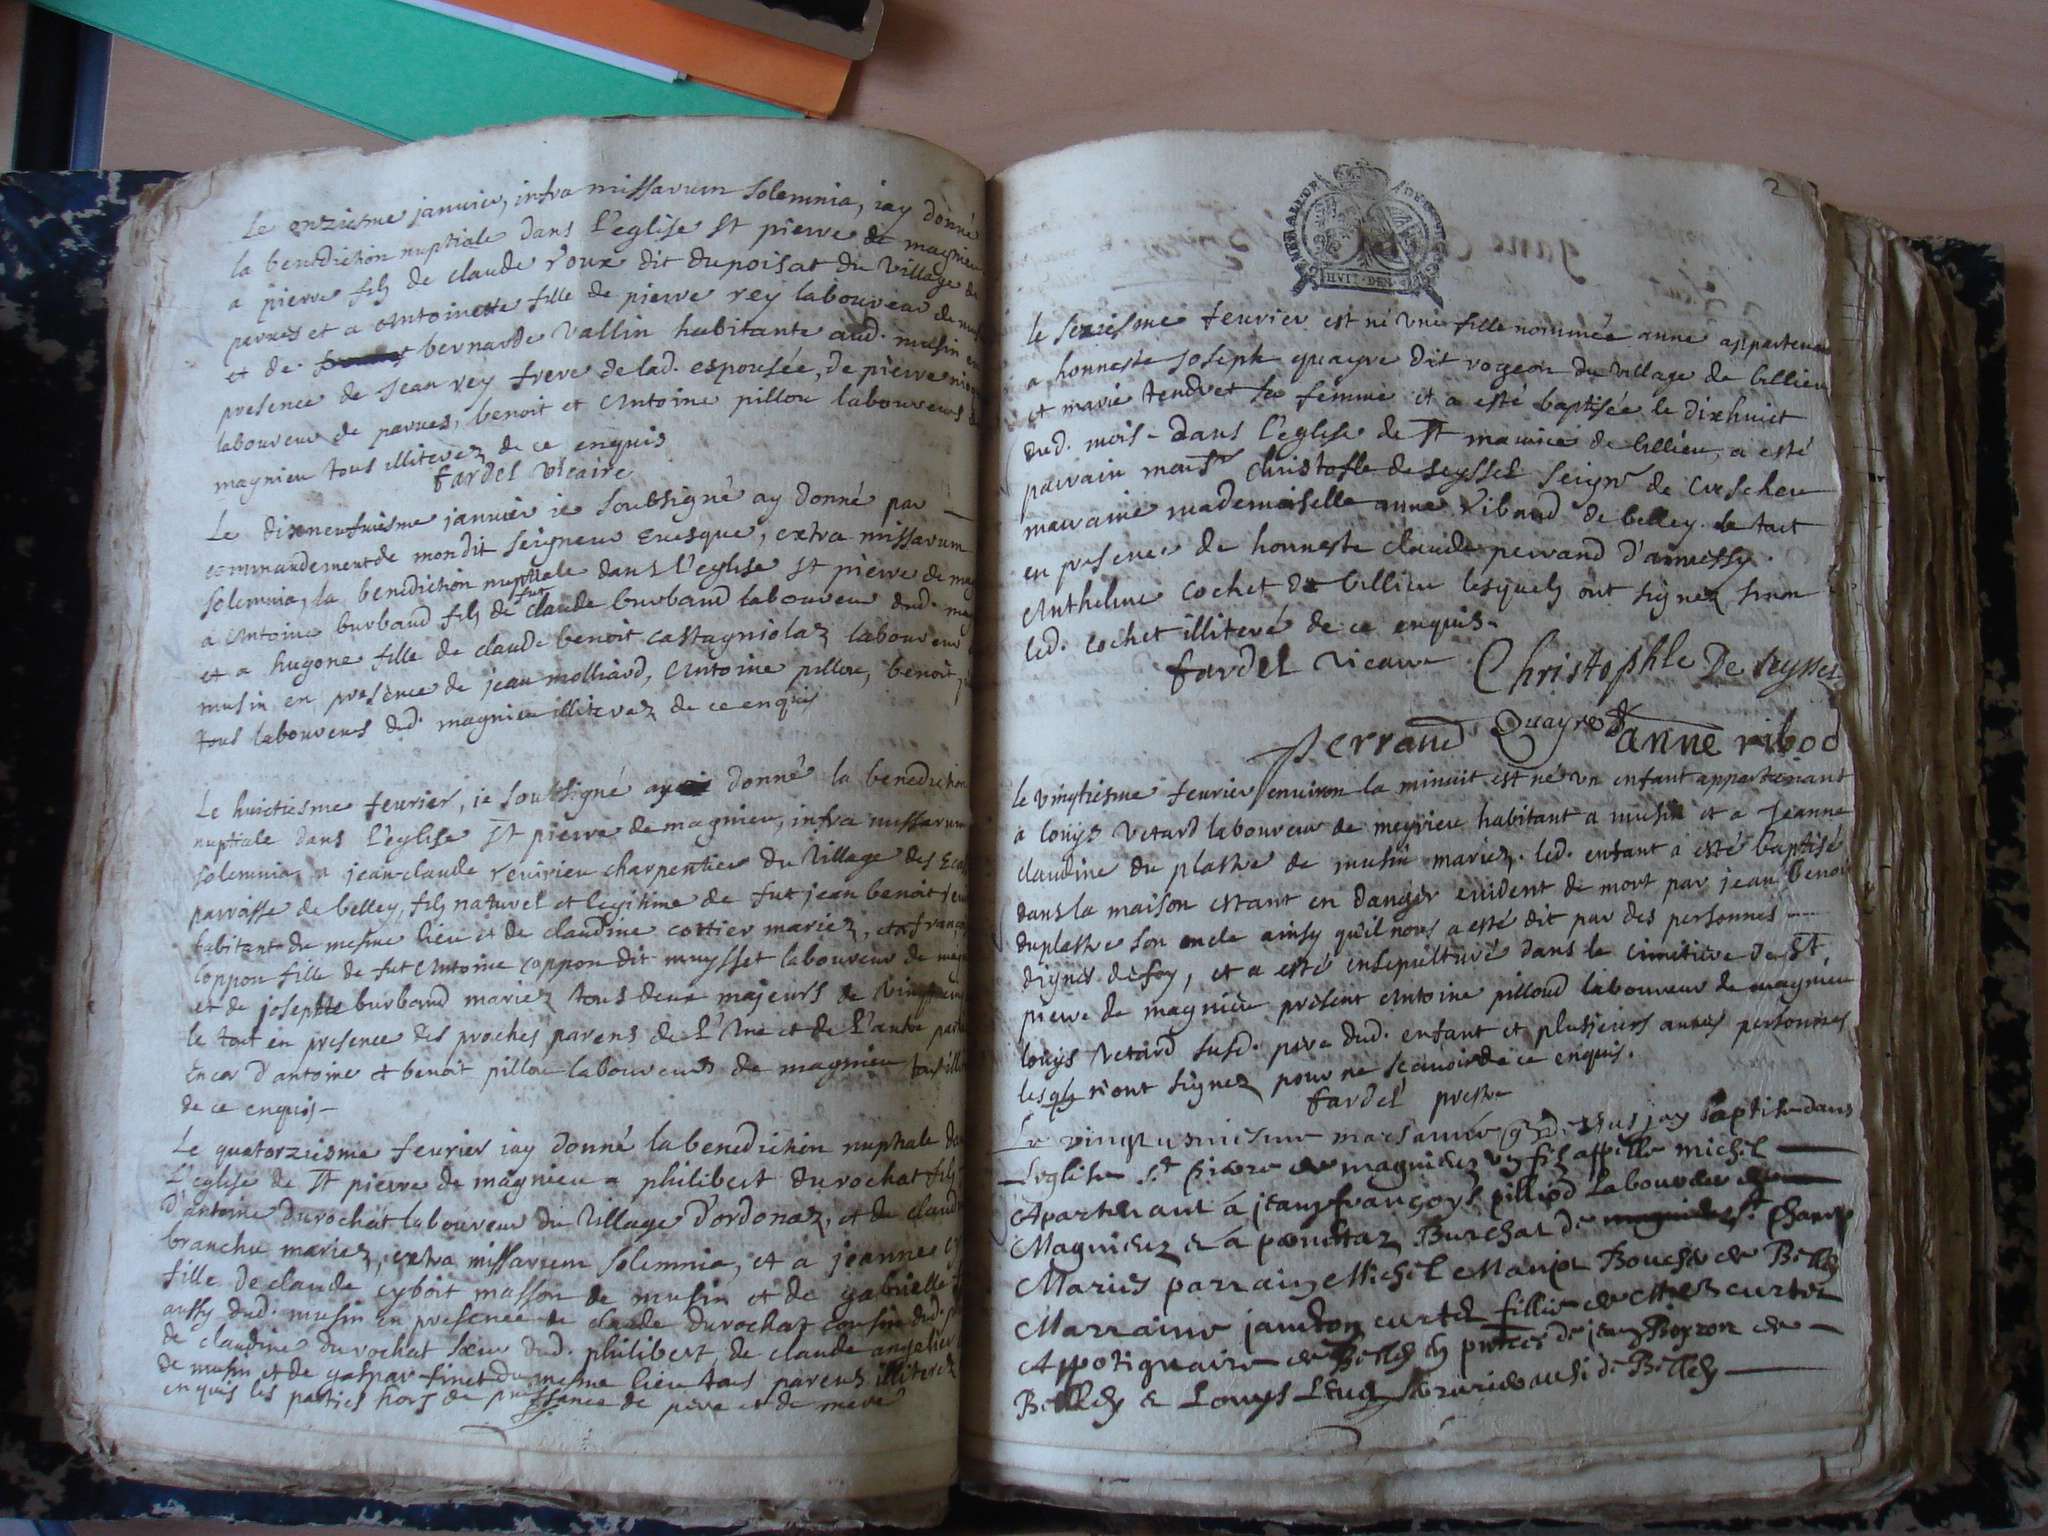 Le onziesme janvier, infra missarum solemnia, iay donné
la benediction nuptiale dans l'eglise st pierre de magnieu
a pierre fils de claude roux dit dupoisat du village de
parves et a Antoinette fille de pierre rey laboureur de
et de bernarde vallin habitante aud. musin en
presence de jean rey frere de lad. espousée, de pierre
laboureur de parves, benoit et Antoine pillou laboureurs de
magnieu tous illiterez de ce enquis
fardel vicaire
Le dixneufuiesme janvier ie soubsigné ay donné par
commandement de mondit seigneur Evesque, extra missarum
solemnia, la benediction nuptiale dans l'eglise st pierre de
a Antoine burbaud fils de fut claude burbaud laboureur dud.
et a hugone fille de claude benoit castagniolaz laboureur
musin en presence de jean molliard, Antoine pillou, benoit
tous laboureurs dud. magnieu illiterez de ce enquis
Le huictiesme feurier, ie soubsigné ay donné la benediction
nuptiale dans l'eglise St pierre de magnieu, infra missarum
solemnia a jean-claude reuirieu charpentier du village des
parroisse de belley, fils naturel et legitime de fut jean benoit
habitant du mesme lieu et de claudine cottier mariez, et a
coppon fille de fut Antoine coppon dit muysset laboureur de
et de josephte burbaud mariez tous deux majeurs de
le tout en presence des proches parens de l'vne et de l'autre
encor d'antoine et benoit pillou laboureurs de magnieu
de ce enquis
Le quatorziesme feurier iay donné la benediction nuptiale
l'eglise de St pierre de magnieu a philibert durochat fils
d'antoine durochat laboureur du village d'ordonaz, et de
branche mariez, extra missarum solemnia, et a jeanne
fille de claude cyboit masson de musin et de gabrielle
aussy dud. musin en presence de claude durochat cousin dud.
de claudine durochat sœur dud. philibert, de claude angelier
de musin et de gaspar finet du mesme lieu tous parens illiterez
enquis les parties hors de puissance de pere et de mere
2
HVIT DEN
le seziesme feurier est né vne fille nommée anne appartenant
a honneste joseph quayre dit rogeon du village de billieu
et marie tendret sa femme et a esté baptisée le dixhuict
dud. mois dans l'eglise de St maurice de billieu, a esté
parrain monsr Christofle de seyssel seignr de
marraine mademoiselle anne Ribaud de belley. le tout
en presence de honneste claude perrand d'annessy
Anthelme cochet de billieu lesquels ont signez sinon
led. cochet illiteré de ce enquis
fardel vicaire Christophle De seyssel
Perrand Quayre anne ribod
le vingtiesme feurier environ la minuit est né vn enfant appartenant
a louys Retard laboureur de meyrieu habitant a musin et a jeanne
claudine du plastre de musin mariez. led. enfant a esté baptisé
dans la maison estant en danger euident de mort par jean benoit
duplastre son oncle ainsy qu'il nous a esté dit par des personnes
dignes de foy, et a esté ensepulturé dans le cimitiere de St
pierre de magnieu present Antoine pilloud laboureur de magnieu
louys Retard susd. pere dud. enfant et plusieurs autres personnes
lesqls n'ont signez pour ne scavoir de ce enquis.
fardel prestre
Le mars année que dessus jay baptisé dans
Leglise St pierre de magnieuz un filz appellé michel
Apartenant a jeanfrançoys pilliod Laboureur de
Magnieuz & a Burchat de St champ
Maries parrain Michel Boucher de Belley
Marraine curtet fillie de curtet
Appotiquaire de Belley en de jean Boyron de
Belley & Louys aussi de Belley